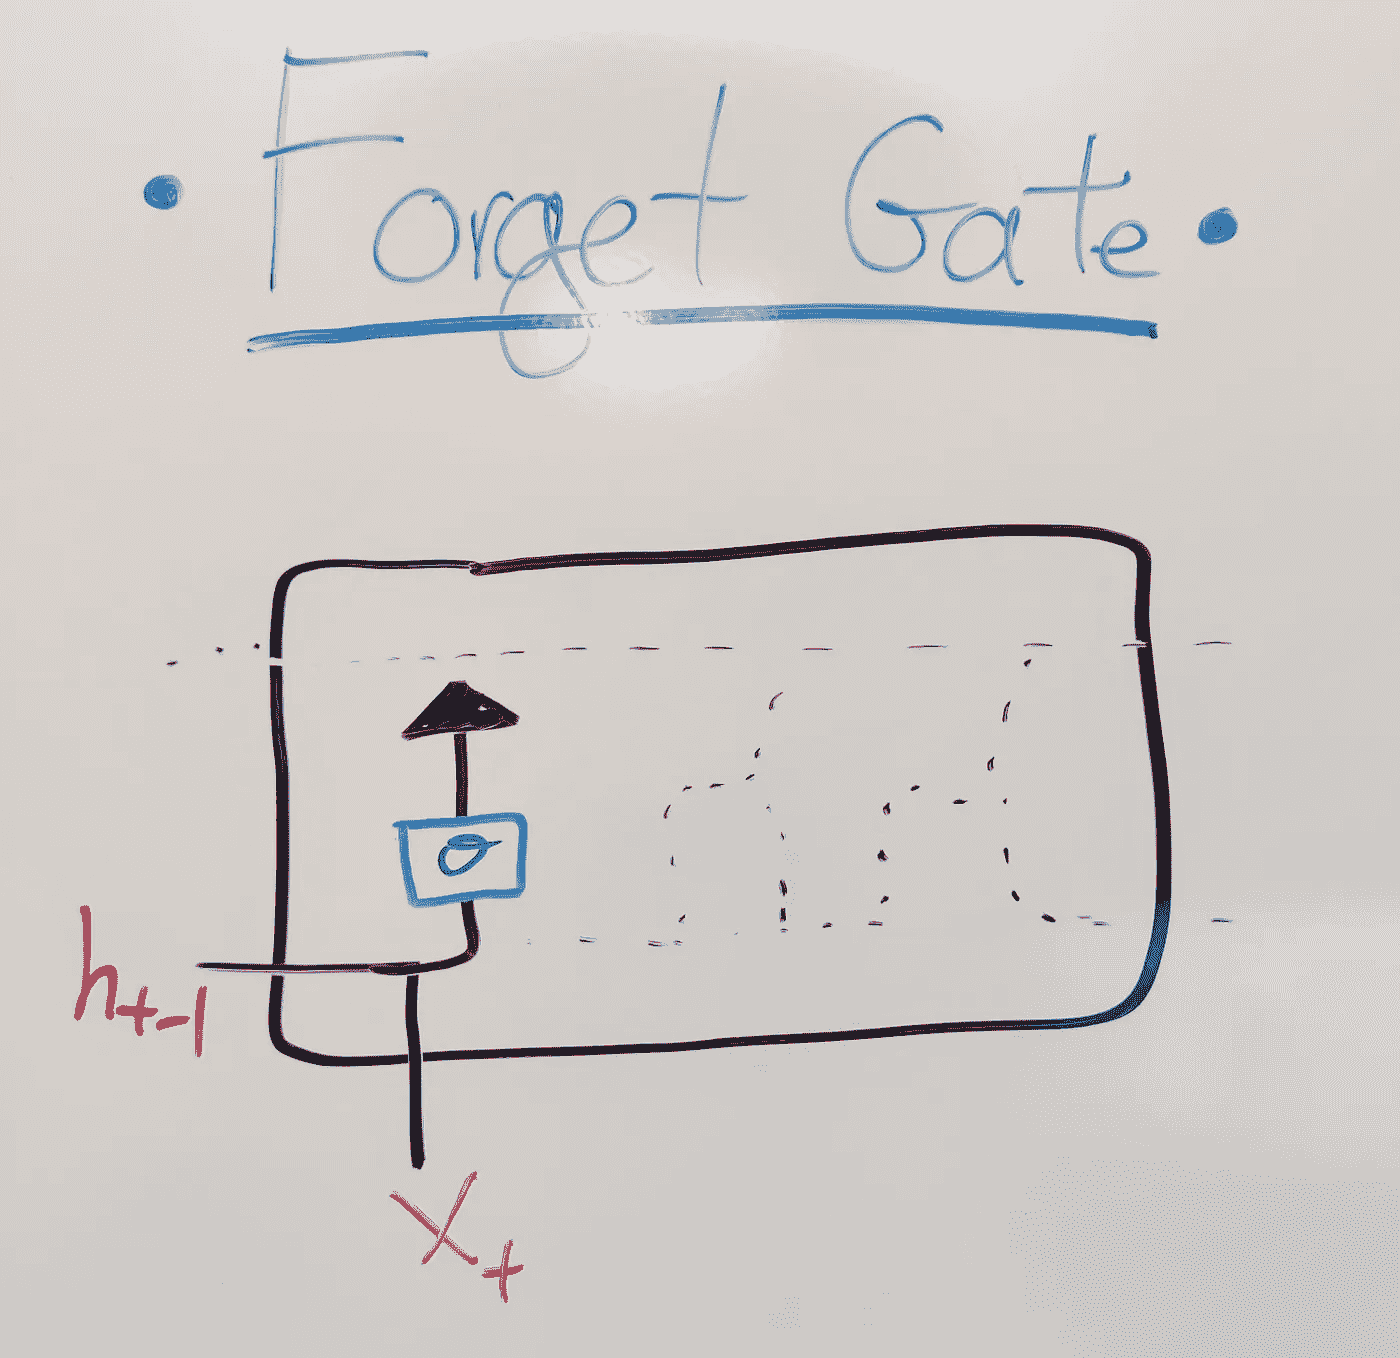 • Forget Gate •
σ
h+-1
X+